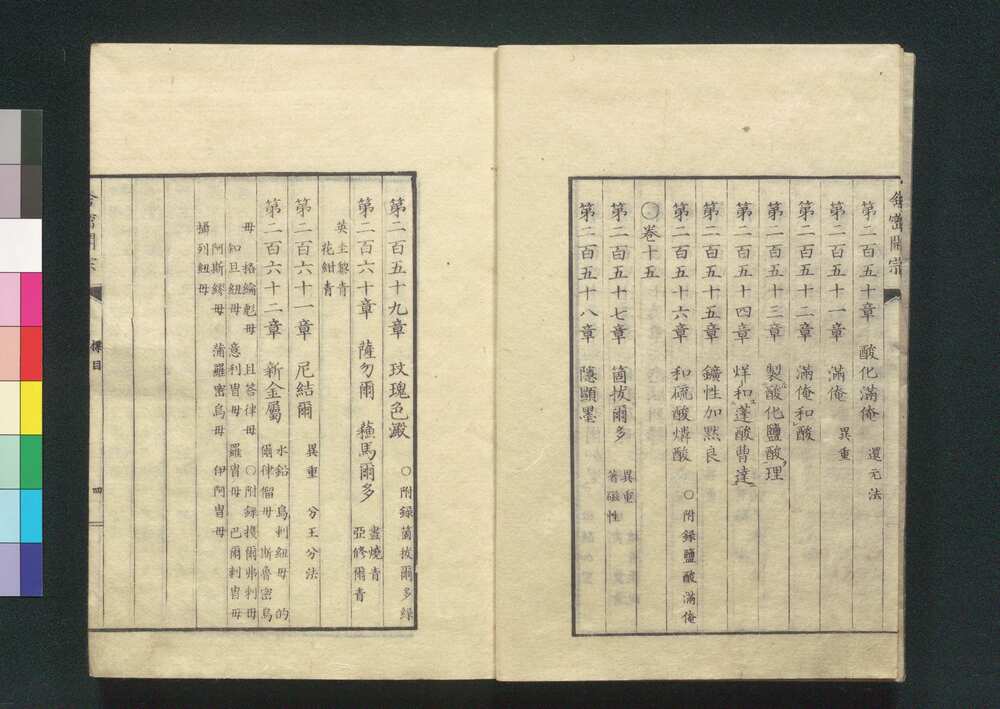 舎密開宗
第二百五十章 酸化滿俺 還元法
第二百五十一章 滿俺 異重
第二百五十二章 滿俺和酸
第二百五十三章 製酸化鹽酸理
第二百五十四章 烊和蓬酸曹達
第二百五十五章 鑛性加黙良
第二百五十六章 和硫酸燐酸 ○附録鹽酸滿俺
○巻十五
第二百五十七章 箇拔爾多 異重
著磁性
第二百五十八章 隱顯墨
第二百五十九章 玫瑰色澱 ○附録箇拔爾多緑
第二百六十章 薩勿爾 蘓馬爾多 畫燒青
亞修爾青
英土黎青
花紺青
第二百六十一章 尼結爾 異重 分王分法
第二百六十二章 新金屬 水鉛 烏剌紐母 的
爾律僧母 斯魯密烏
母 格綸毡母 且答律母 ○附録 爾弗剌母
知且紐母 意利胄母 羅胄母 巴爾剌胄母
阿斯繆母 蒲羅密烏母 伊阿胄母
撮列紐母
舎密開宗 標目 四